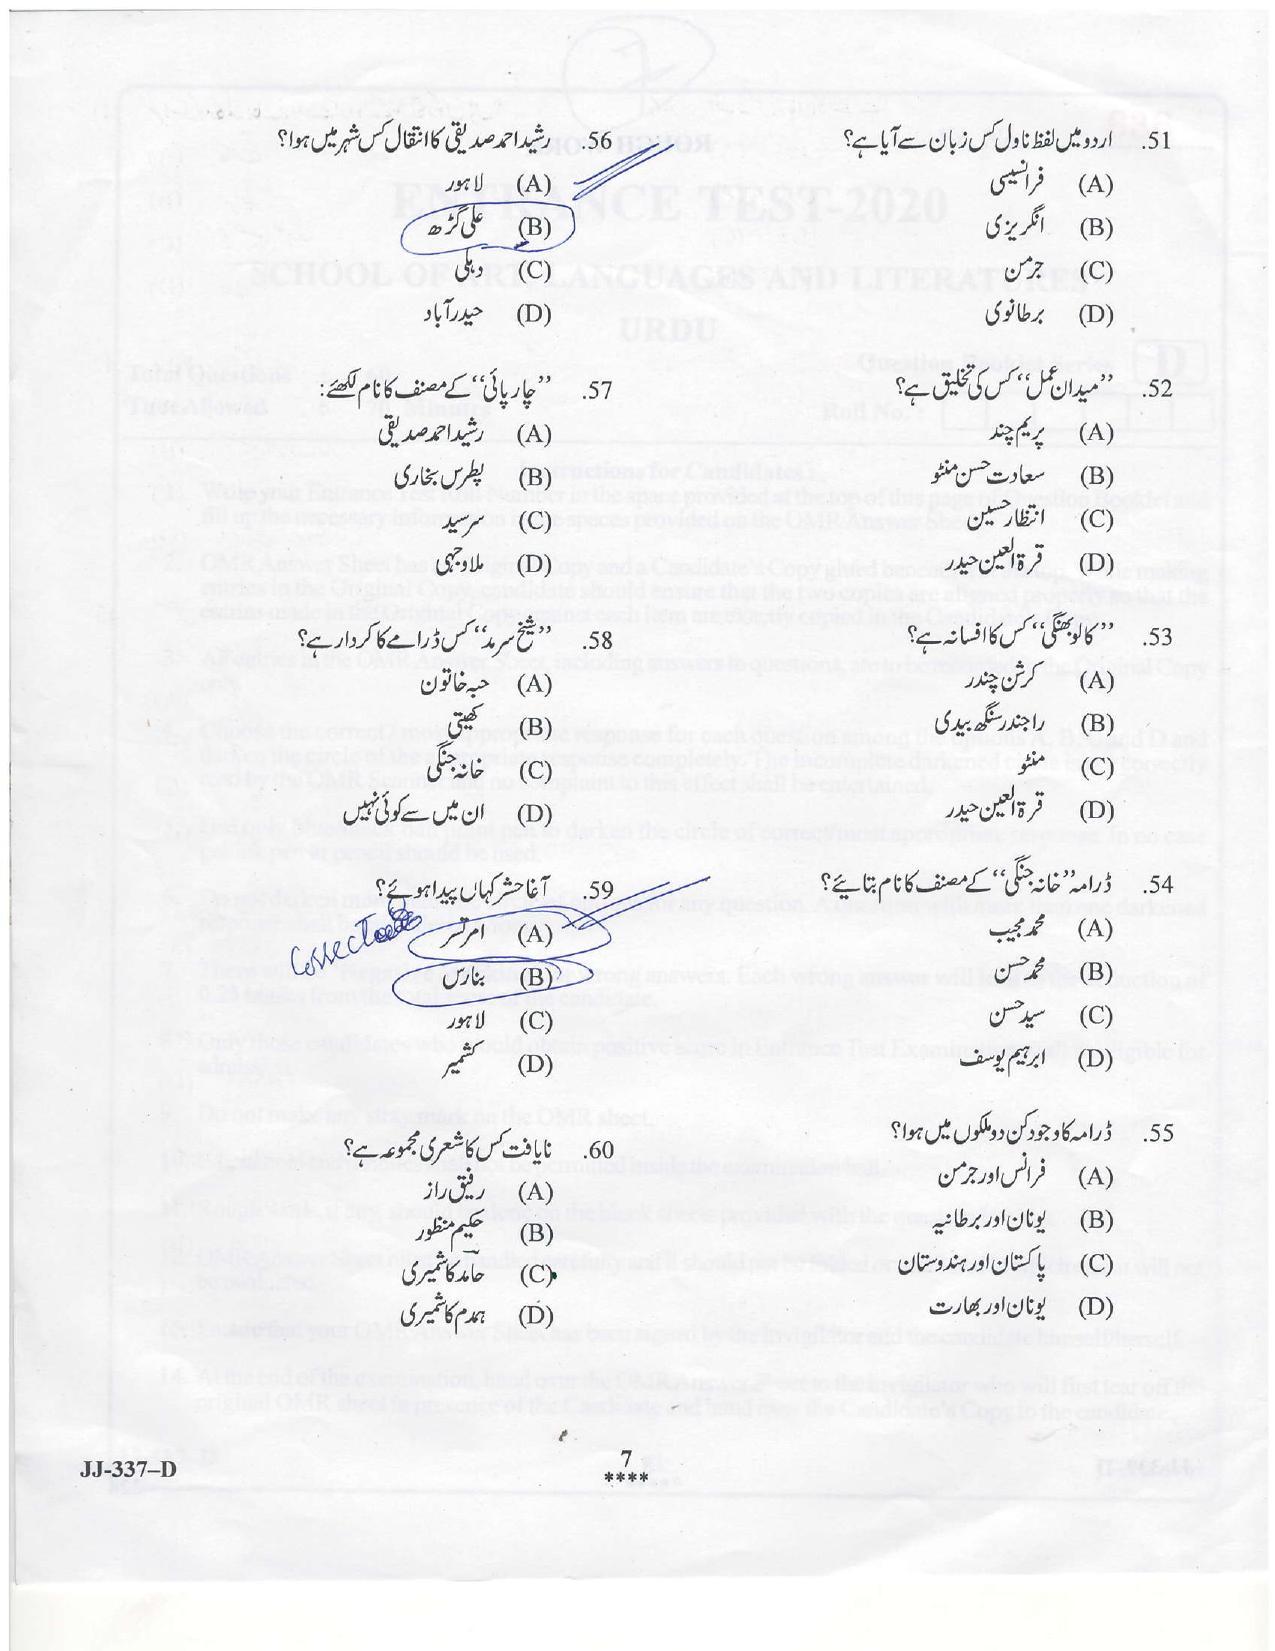 51. اردو میں لفظ ناول کس زبان سے آیا ہے؟
(A) فرانسیسی
(B) انگریزی
(C) جرمن
(D) برطانوی
52. ”میدان عمل“ کس کی تخلیق ہے؟
(A) پریم چند
(B) سعادت حسن منٹو
(C) انتظار حسین
(D) قرۃ العین حیدر
53. ”کالو بھنگی“ کس کا افسانہ ہے؟
(A) کرشن چندر
(B) راجندر سنگھ بیدی
(C) منٹو
(D) قرۃ العین حیدر
54. ڈرامہ ”خانہ جنگی“ کے مصنف کا نام بتائیے؟
(A) محمد مجیب
(B) محمد حسن
(C) سید حسن
(D) ابرہیم یوسف
55. ڈرامہ کا وجود کن دو ملکوں میں ہوا؟
(A) فرانس اور جرمن
(B) یونان اور برطانیہ
(C) پاکستان اور ہندوستان
(D) یونان اور بھارت
56. رشید احمد صدیقی کا انتقال کس شہر میں ہوا؟
(A) لاہور
(B) علی گڑھ
(C) دہلی
(D) حیدرآباد
57. ”چارپائی“ کے مصنف کا نام لکھئے:
(A) رشید احمد صدیقی
(B) پطرس بخاری
(C) سرسید
(D) ملا وجہی
58. ”شیخ سرمد“ کس ڈرامے کا کردار ہے؟
(A) حبہ خاتون
(B) کھیتی
(C) خانہ جنگی
(D) ان میں سے کوئی نہیں
59. آغا حشر کہاں پیدا ہوئے؟
(A) امرتسر
(B) بنارس
(C) لاہور
(D) کشمیر
60. نایافت کس کا شعری مجموعہ ہے؟
(A) رفیق راز
(B) حکیم منظور
(C) حامد کاشمیری
(D) ہمدم کاشمیری
JJ-337–D
7
****